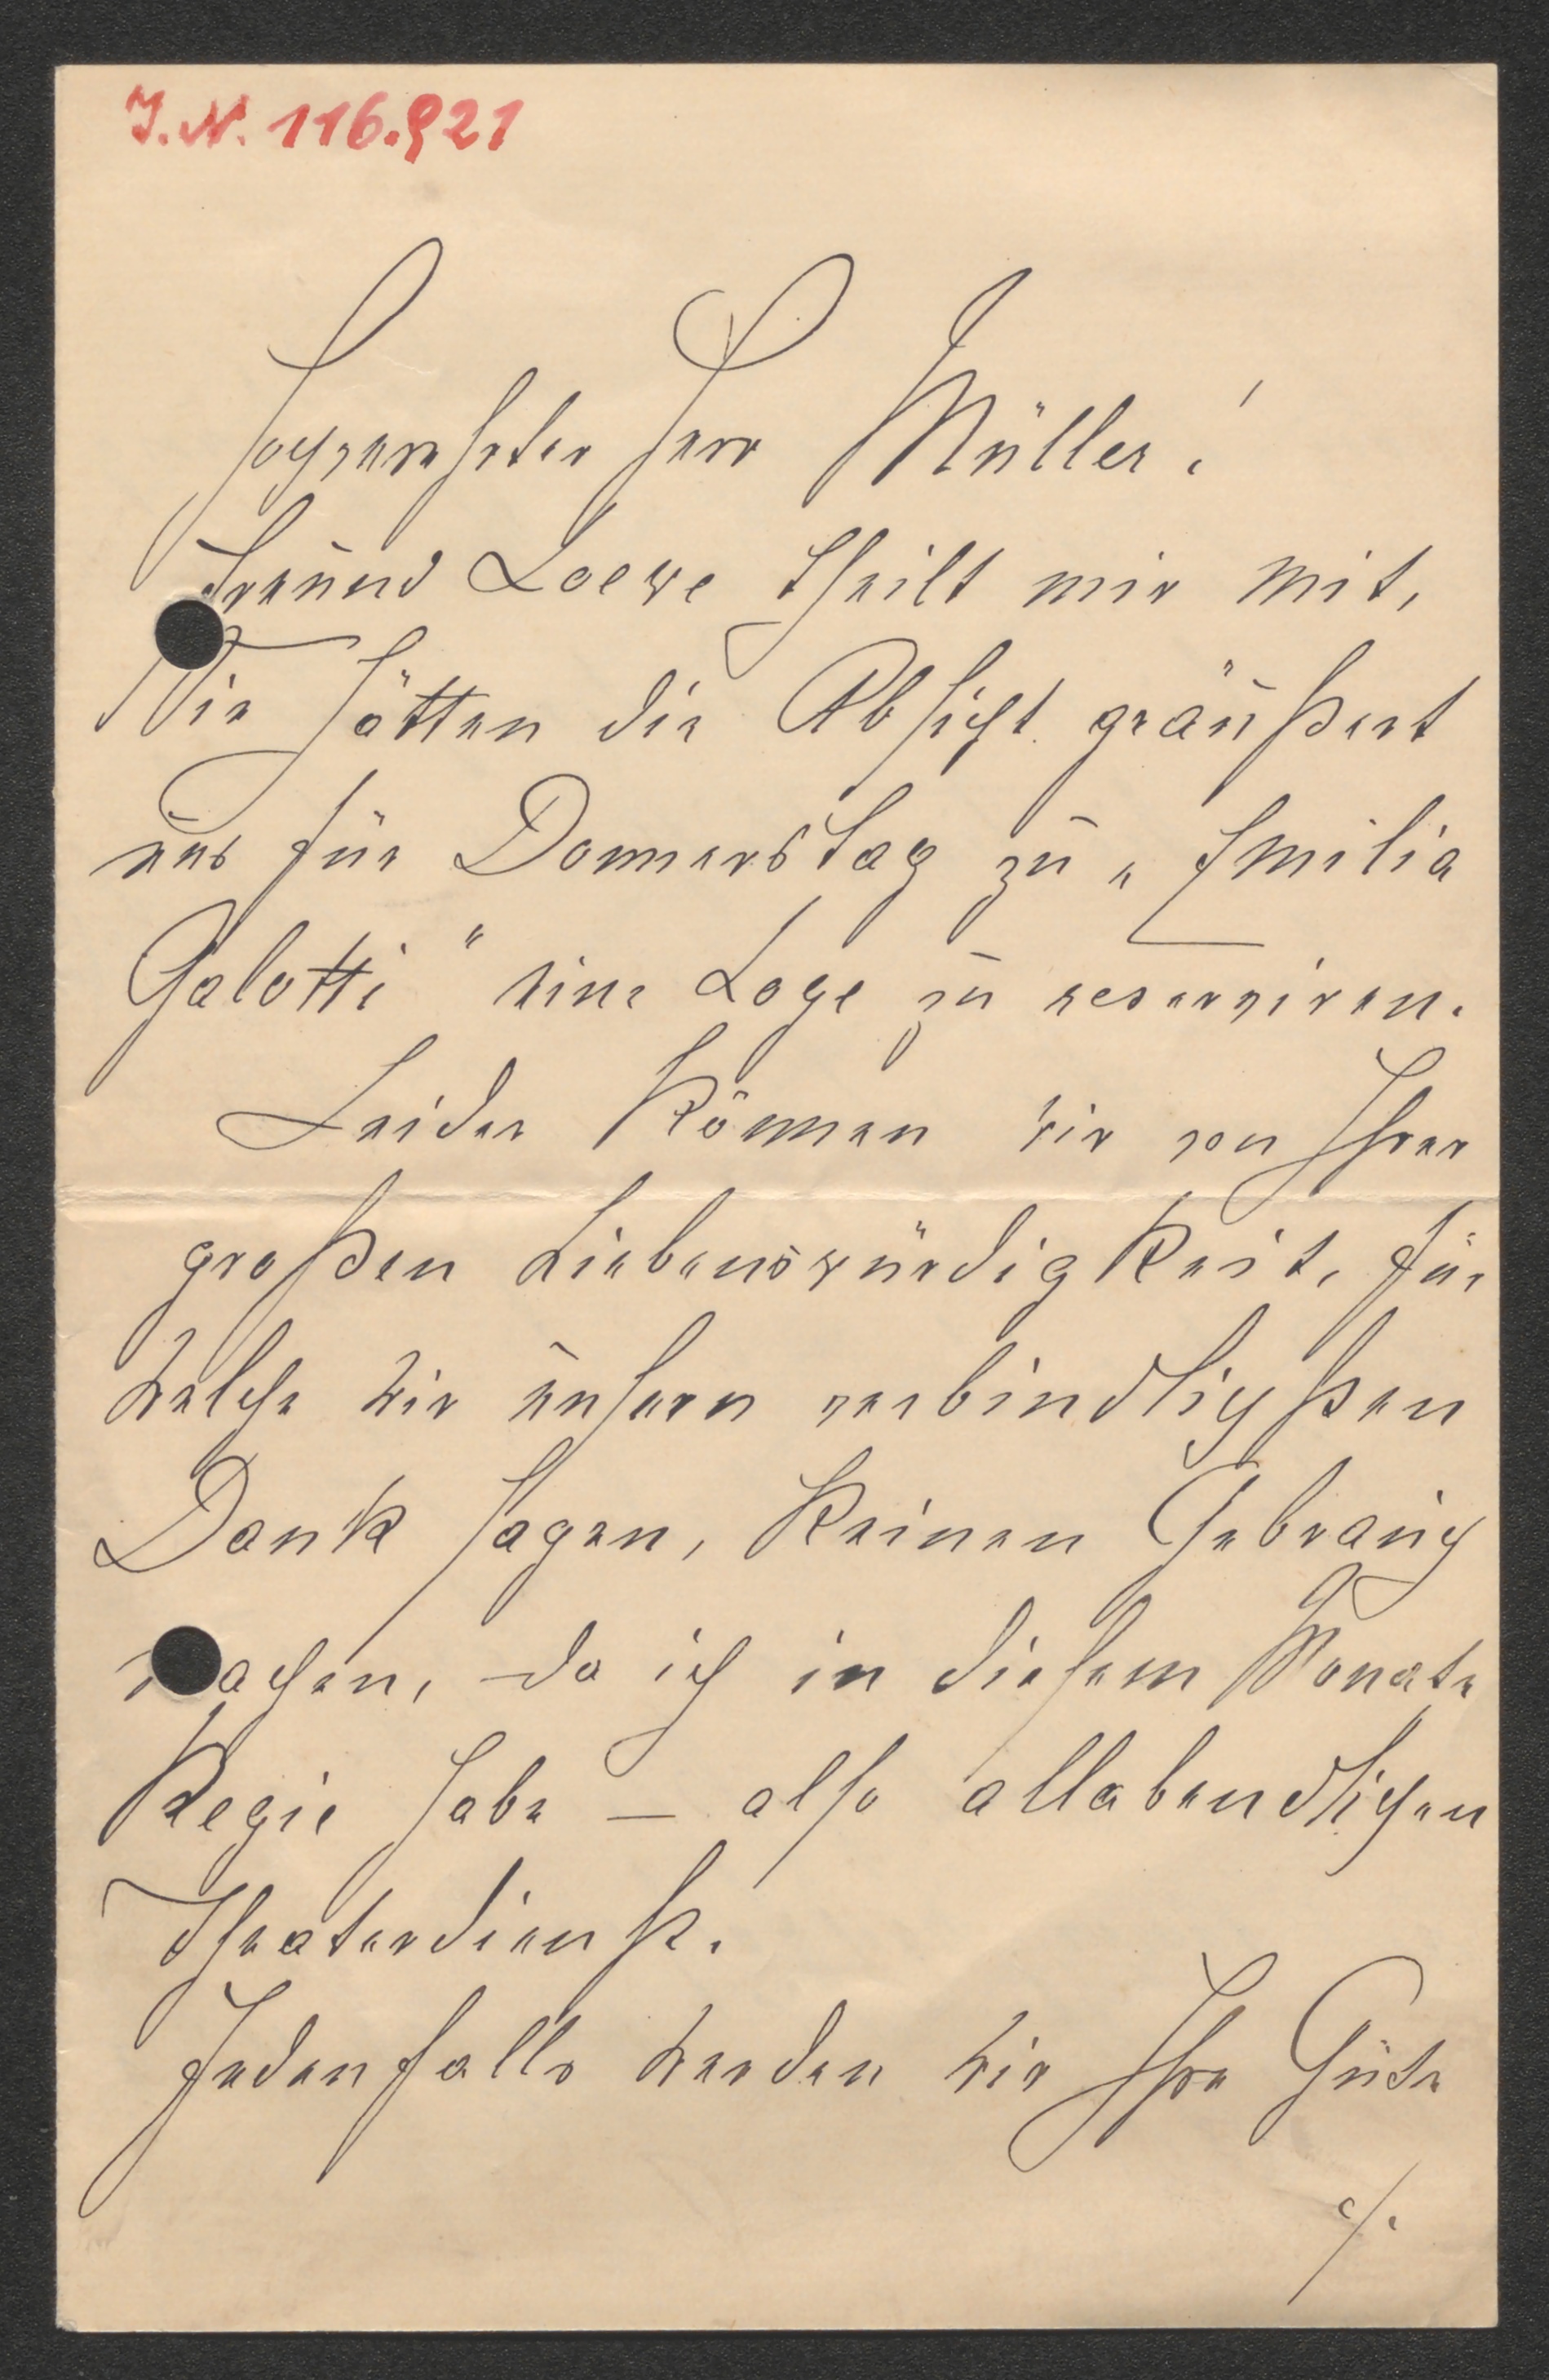 I. N. 116.921
Hochverehrter Herr Müller!
Freund Loewe theilt mir mit,
Sie hätten die Absicht geäußert
uns für Donnerstag zu „Emilia
Galotti" eine Loge zu reserviren.
Leider können wir von Ihrer
großen Liebenswürdigkeit, für
welche wir unsern verbindlichsten
Dank sagen, keinen Gebrauch
machen, da ich in diesem Monate
Regie habe – also allabendlichen
Theaterdienst.
Jedenfalls werden wir Ihre Güte
./.